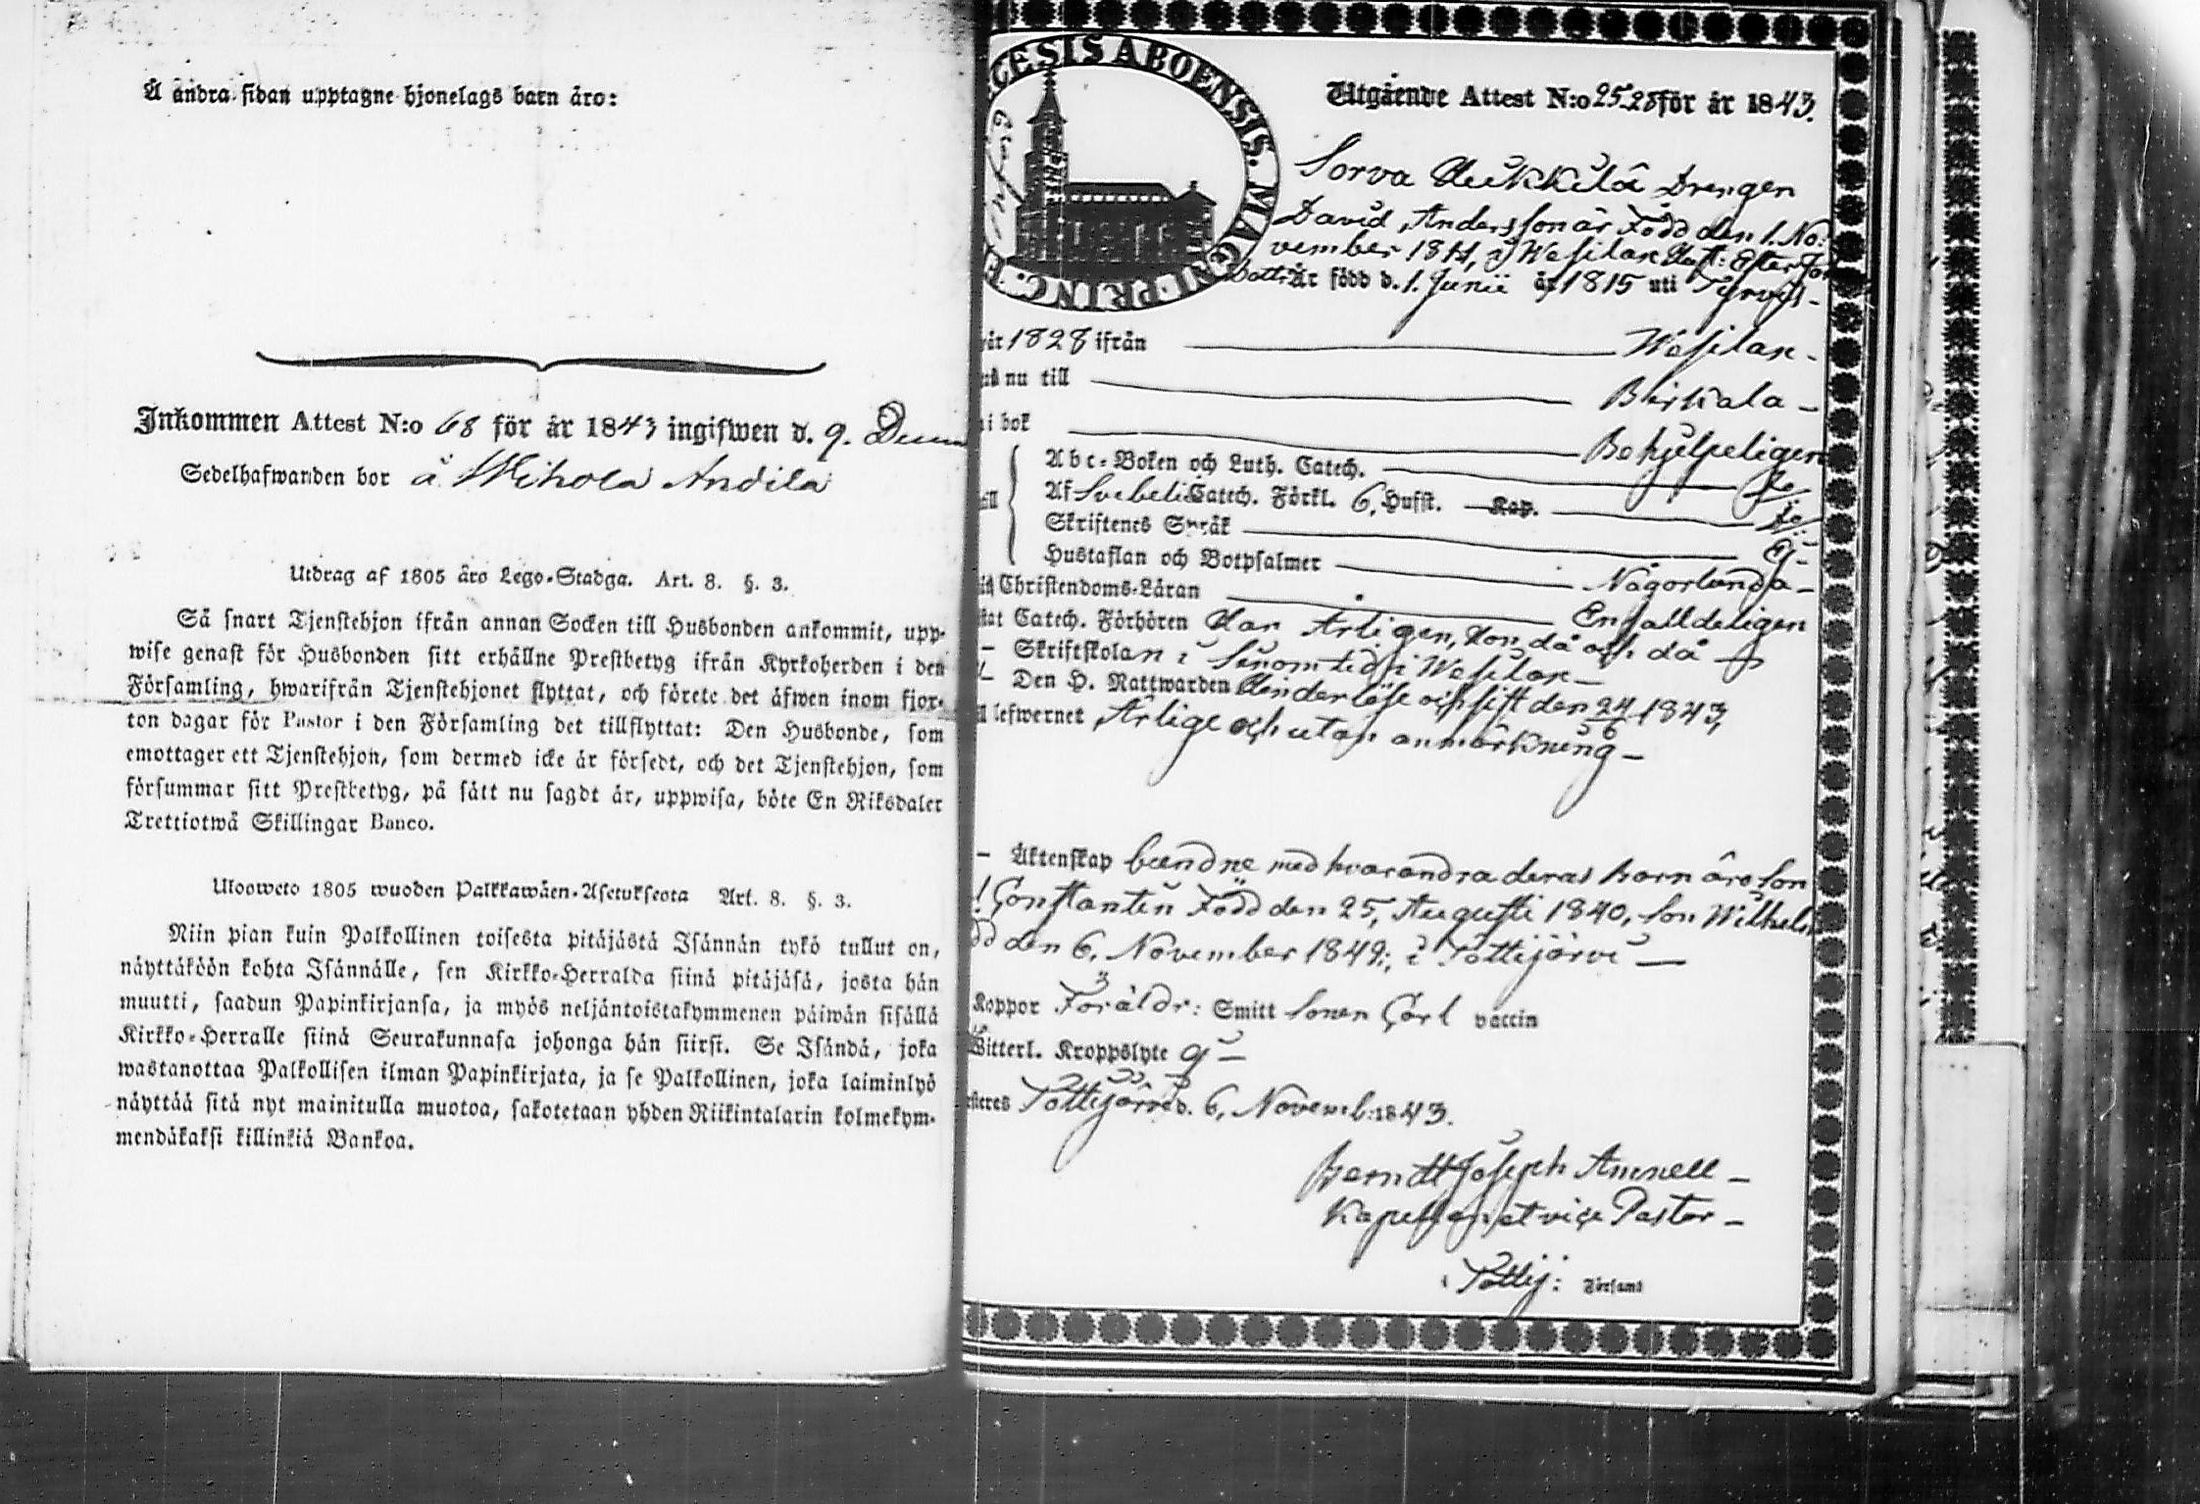 Å andra sidan upptagne hjonelags barn äro:
Inkommen Attest N:o 68 för år 1843 ingifwen d. 9. Decem
Sedelhafwanden bor å Mihola Andila
Utdrag af 1805 års Lego-Stadga. Art. 8. §. 3.
Så snart Tjenstehjon ifrån annan Socken till Husbonden ankommit, upp-
wise genast för Husbonden sitt erhållne Prestbetyg ifrån Kyrkoherden i den
Församling, hwarifrån Tjenstehjonet flyttat, och förete det äfwen inom fjor-
ton dagar för Pastor i den Församling det tillflyttat: Den Husbonde, som
emottager ett Tjenstehjon, som dermed icke är försedt, och det Tjenstehjon, som
försummar sitt Prestbetyg, på sätt nu sagdt är, uppwisa, böte En Riksdaler
Trettiotwå Skillingar Banco.
Uloosweto 1805 wuoden Palkkawäen-Asetuksesta Art. 8. §. 3.
Niin pian kuin Palkollinen toisesta pitäjästä Isännän tykö tullut on,
näyttäköön kohta Isännälle, sen Kirkko-Herralda siinä pitäjäsä, josta hän
muutti, saadun Papinkirjansa, ja myös neljäntoistakymmenen päiwän sisällä
Kirkko-Herralle siinä Seurakunnasa johonga hän siirsi. Se Isändä, joka
wastanottaa Palkollisen ilman Papinkirjata, ja se Palkollinen, joka laiminlyö
näyttää sitä nyt mainitulla muotoa, sakotetaan yhden Riikintalarin kolmekym-
mendäkaksi killinkiä Bankoa.
CESIS ABOENSIS. MAGNI PRINC.
Utgående Attest N:o 25 28 för år 1843.
Sorva Heikkilä Drengen
David Andersson är Född den 1. No:
vember 1811, i Wesilax Hust: Ester Jo
Dottr Är född d. 1. Junii år 1815 uti Tyrvis -
år 1828 ifrån Wesilax -
nu till Birkala -
i bok Behjelpeligen
Abc-Boken och Luth. Catech. Jo
Af Svebelii Catech. Förkl. 6, Hufst. Kap. Jo
Skriftenes Språk Ej -
Hustaflan och Botpsalmer Någorlunda -
Christendoms-Läran Enfalldeligen
Catech. Förhören Han Årligen, Hon då och då
- Skriftskolan i sinom tid i Wesilax -
Den H. Nattwarden Hinderlöse och sist den 24/6 1843,
lefwernet Ärlige och utan anmärkning -
- Äktenskap beendne med hvarandra deras Barn äro Son
Constantin Född den 25, Augusti 1840, Son Wilhelm
den 6, November 1842, i Tottijärvi -
Koppor Föräldr: Smitt Sonen Carl vaccin
Witterl. Kroppslyte Ej -
Tottijärvi d. 6, Novemb: 1843.
Berndt Joseph Amnell -
Kapellan et vice Pastor -
i Tottij: Församl